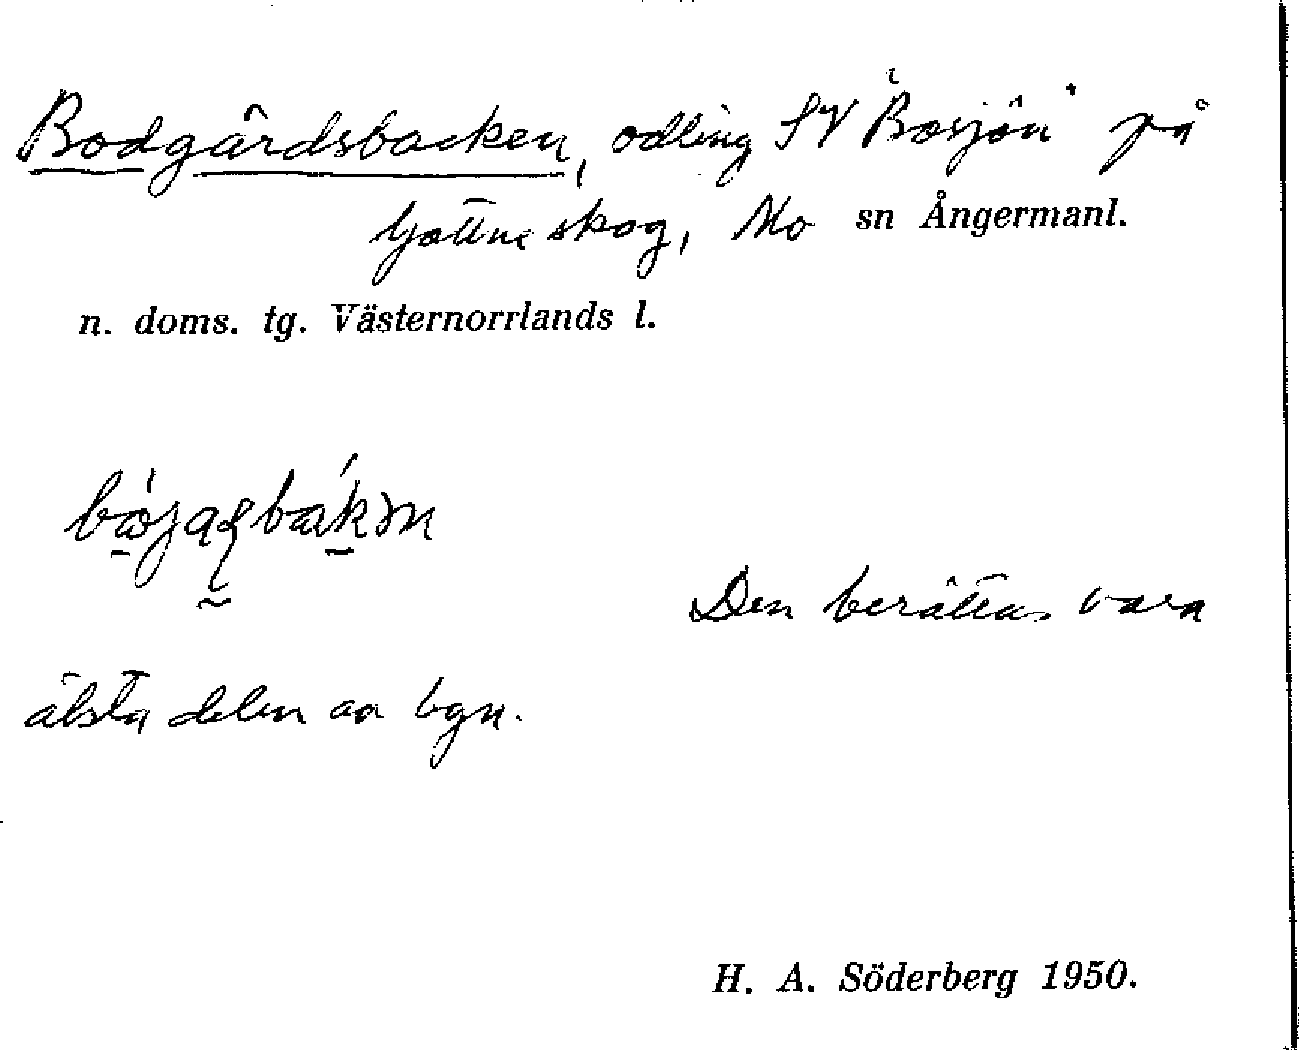 Bodgårdsbacken, odling SV "Bosjön" på
Gottne skog, Mo sn Ångermanl.
n. doms. tg. Västernorrlands l.
Den berättas vara
älsta delen av bgn.
H. A. Söderberg 1950.